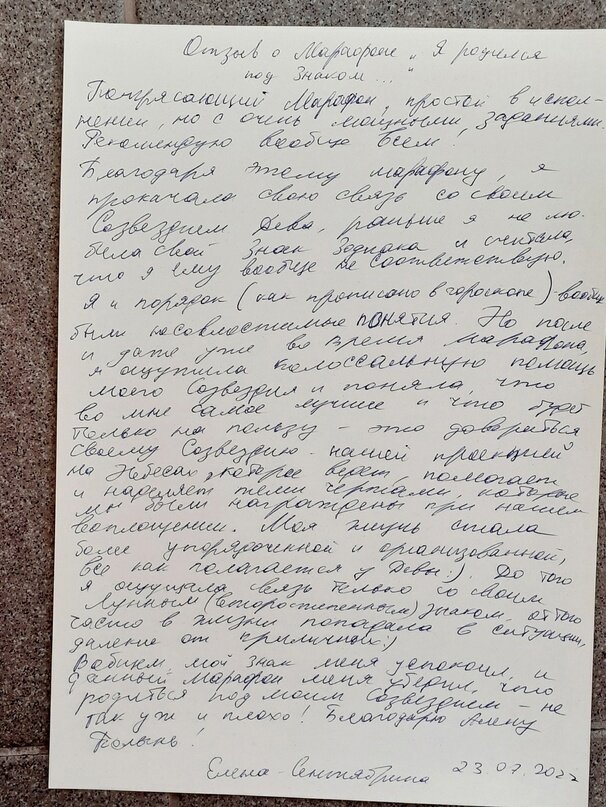 Отзыв о Марафоне „Я родился
под Знаком..."
Потрясающий Марафон, простой в испол-
нении, но с очень мощными заданиями.
Рекомендую вообще всем!
Благодаря этому марафону, я
прокачала свою связь со своим
Созвездием Дева, раньше я не лю-
била свой Знак Зодиака и считала,
что я ему вообще не соответствую.
Я и порядок (как прописано в гороскопе) вообще
были несовместимые понятия. Но после
и даже уже во время марафона,
я ощутила колоссальную помощь
моего Созвездия и поняла, что
во мне самое лучшее и что будет
только на пользу - это довериться
своему Созвездию - нашей проекцией
на Небесах, которое ведет, помогает
и наделяет теми чертами, которые
мы были награждены при нашем
воплощении. Моя жизнь стала
более упорядоченной и организованной,
все как полагается у Девы:). До того
я ощущала связь только со своим
Лунным (второстепенным) знаком, от того
часто в жизни попадала в ситуации,
далекие от приличной:)
В общем, мой знак меня успокоил, и
данный Марафон меня убедил, что
родиться под моим Созвездием - не
так уж и плохо! Благодарю Алену
Полынь!
Елена-Сентябрина 23 07.2022